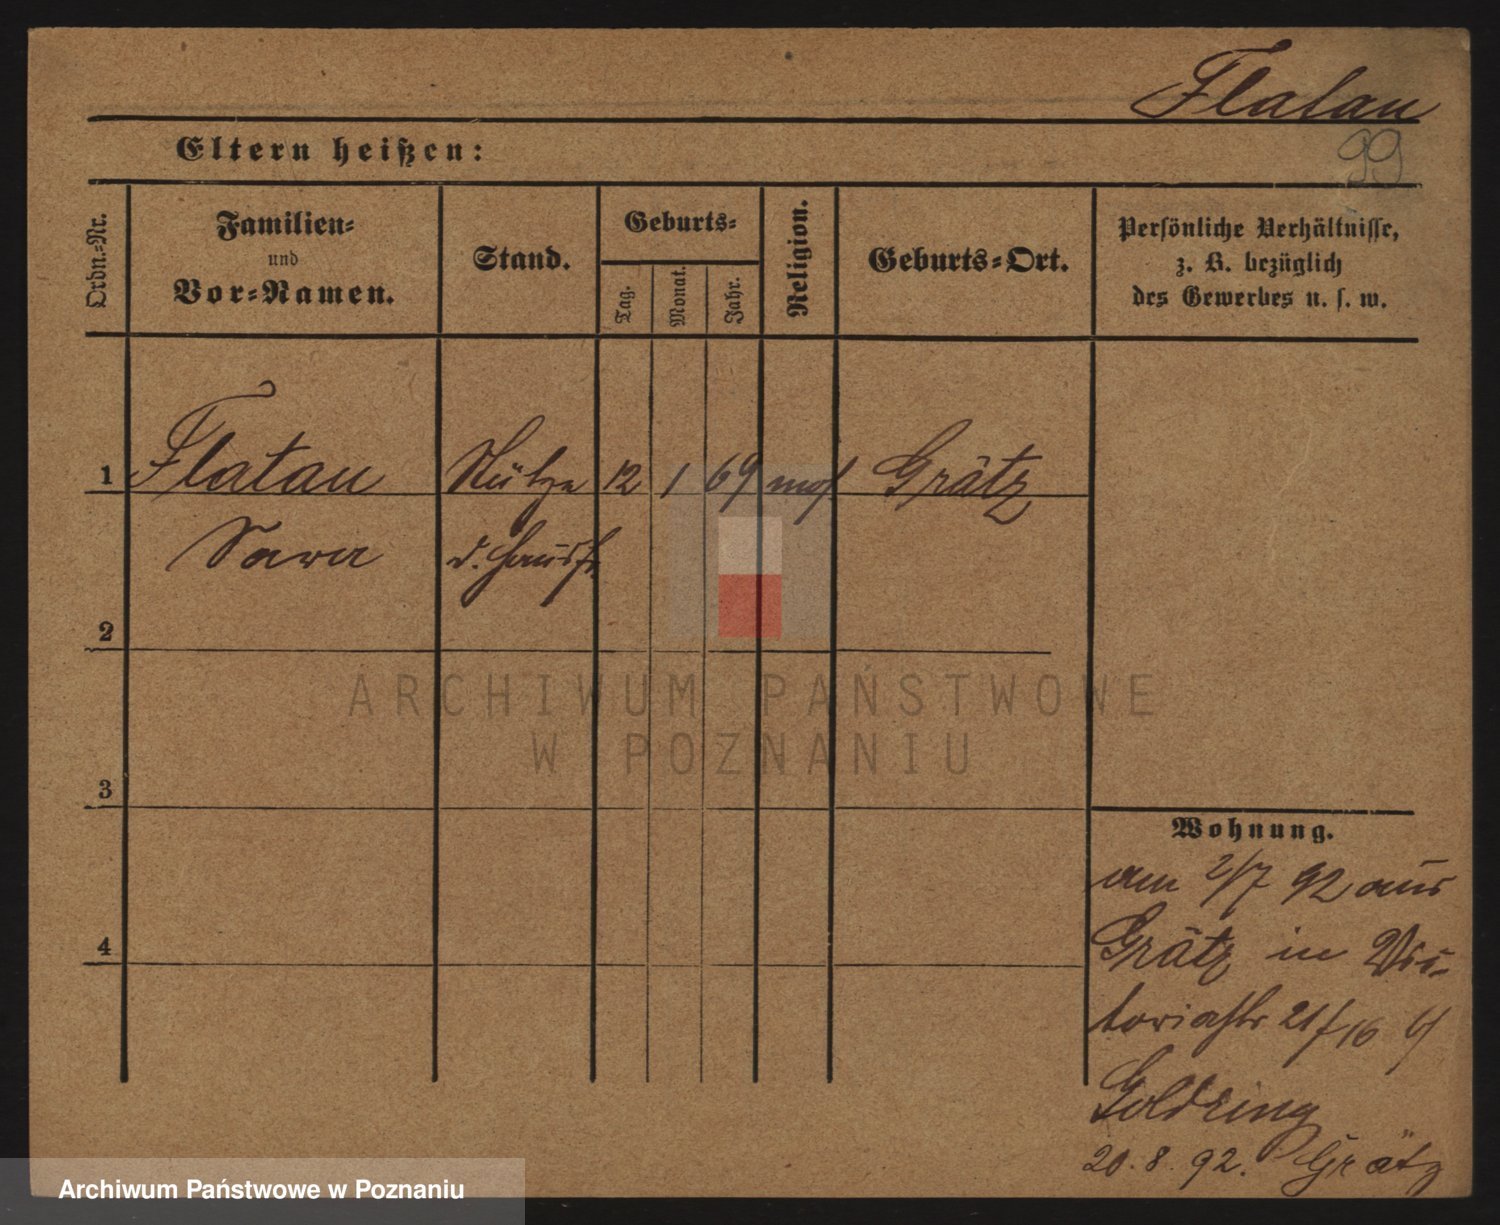 Flatau
99
Eltern heißen:
Ordn.-Nr.
Familien-
und
Vor-Namen.
Stand.
Geburts-
Tag.
Monat.
Jahr.
Religion.
Geburts-Ort.
Persönliche Verhältnisse,
z. B. bezüglich
des Gewerbes u. s. w.
1 Flatau Stütze 12 1 69 mos. Grätz
d. Hausfr.
2
ARCHIWUM PAŃSTWOWE
W POZNANIU
3
Wohnung.
am 2/7 92 aus
4
Grätz in Vic-
toriastr 21/16 b/
Goldring
20. 8. 92. Grätz
Archiwum Państwowe w Poznaniu